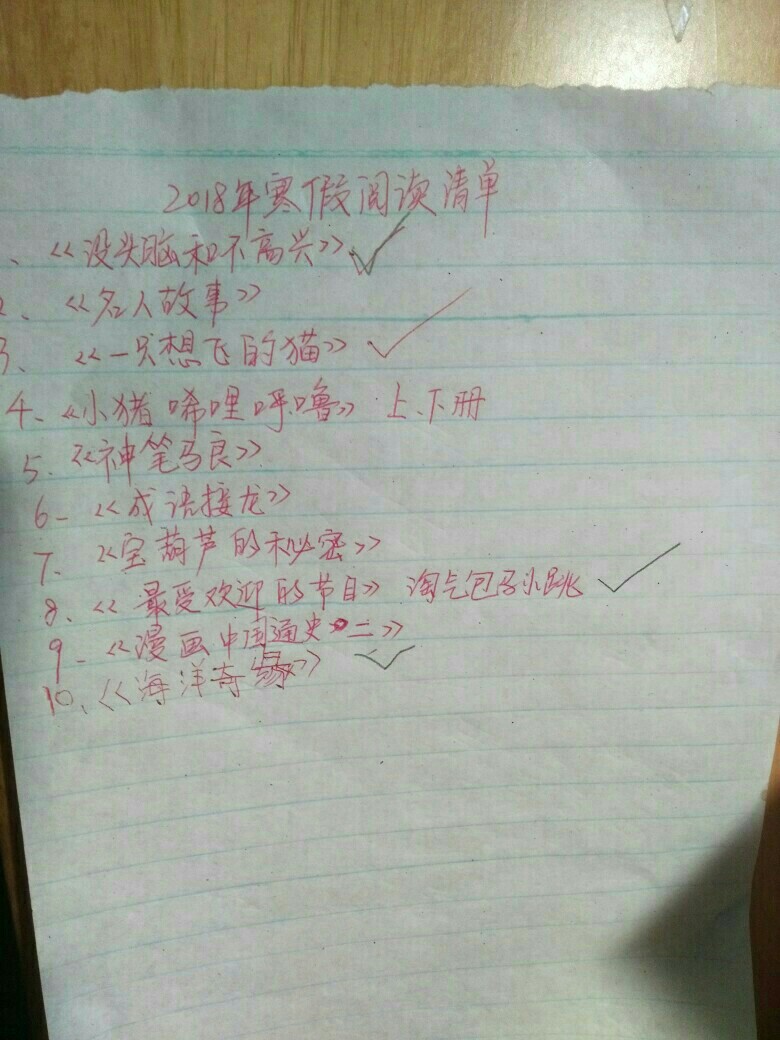 2018年寒假阅读清单
1、《没头脑和不高兴》✓
2、《名人故事》
3、《一只想飞的猫》✓
4、《小猪唏哩呼噜》上、下册
5.《神笔马良》
6-《成语接龙》
7、《宝葫芦的秘密》
8、《最受欢迎的节目》 淘气包马小跳 ✓
9-《漫画中国通史二》
10、《海洋奇缘》✓